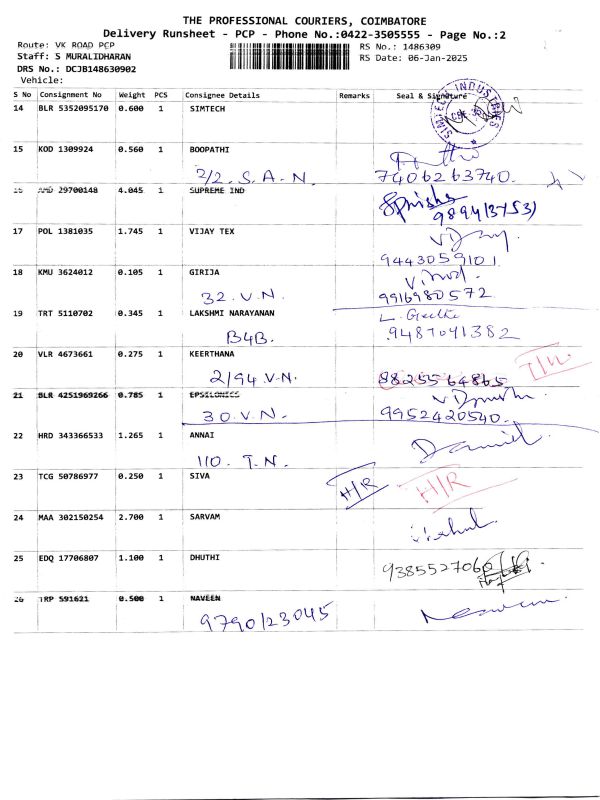 THE PROFESSIONAL COURIERS, COIMBATORE
Delivery Runsheet - PCP - Phone No.:0422-3505555 - Page No.:2
Route: VK ROAD PCP
RS No.: 1486309
Staff: S MURALIDHARAN
RS Date: 06-Jan-2025
DRS No.: DCJB148630902
Vehicle:
S No Consignment No Weight PCS Consignee Details Remarks Seal & Signature
14 BLR 5352095170 0.600 1 SIMTECH
SIMTECH INDUSTRIES
15 KOD 1309924 0.560 1 BOOPATHI
2/2. S. A. N. 7406263740.
16 AMD 29700148 4.045 1 SUPREME IND
17 POL 1381035 1.745 1 VIJAY TEX
9443059101
18 KMU 3624012 0.105 1 GIRIJA
32. V.N. 9916980572
19 TRT 5110702 0.345 1 LAKSHMI NARAYANAN
L. Geetha
B4B. 9487041382
20 VLR 4673661 0.275 1 KEERTHANA
2/94 V.N. 8825564865
21 BLR 4251969266 0.785 1 EPSILONICS
30. V.N. 9952420540.
22 HRD 343366533 1.265 1 ANNAI
110. T.N. Daniel
23 TCG 50786977 0.250 1 SIVA
H/R H/R
24 MAA 302150254 2.700 1 SARVAM
25 EDQ 17706807 1.100 1 DHUTHI
9385527060
26 TRP 591621 0.500 1 NAVEEN
9790123045